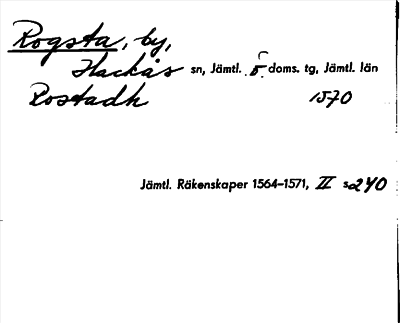 Rogsta, by,
Hackås sn, Jämtl. S. doms. tg, Jämtl. län
Rostadh 1570
Jämtl. Räkenskaper 1564–1571, II s 240